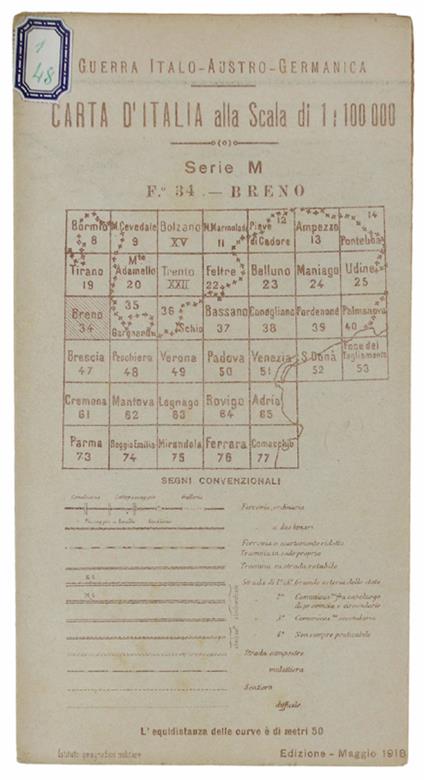 1
48
GUERRA ITALO-AUSTRO-GERMANICA
CARTA D'ITALIA alla Scala di 1:100 000
Serie M
F.° 34 — BRENO
Bormio M.Cevedale Bolzano M.Marmolada Pieve di Cadore 12 Ampezzo 14
8 9 XV 11 13 Pontebba
Tirano Mte Adamello Trento Feltre Belluno Maniago Udine
19 20 XXII 22 23 24 25
Breno 35 36 Bassano Conegliano Pordenone Palmanova
34 Gargnano Schio 37 38 39 40
Brescia Peschiera Verona Padova Venezia S. Donà Foce del Tagliamento
47 48 49 50 51 52 53
Cremona Mantova Legnago Rovigo Adria
61 62 63 64 65
Parma Reggio Emilia Mirandola Ferrara Comacchio
73 74 75 76 77
SEGNI CONVENZIONALI
Ferrovia, ordinaria
a due binari
Ferrovia a scartamento ridotto
Tramvia in sede propria
Tramvia su strada rotabile
Strada di 1ª
2ª
3ª
4ª Non sempre praticabile
Strada campestre
mulattiera
Sentiero
difficile
L'equidistanza delle curve è di metri 50
Istituto geografico militare
Edizione - Maggio 1918